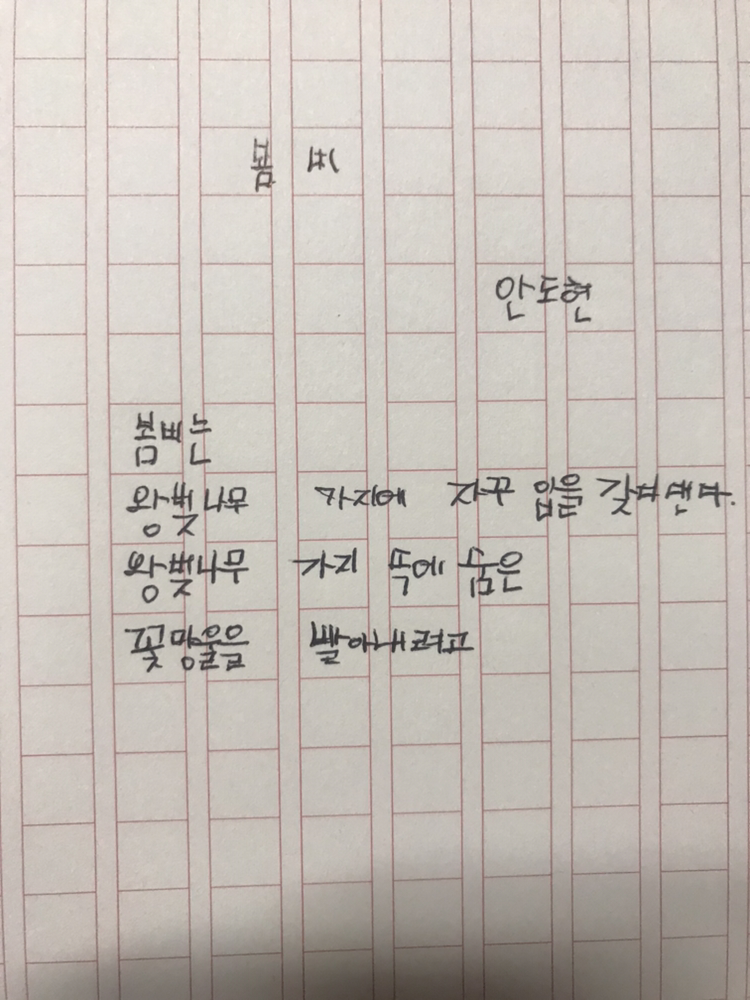 봄 비
안도현
봄비는
왕벚나무 가지에 자꾸 입을 갖다댄다.
왕벚나무 가지 속에 숨은
꽃망울을 빨아내려고